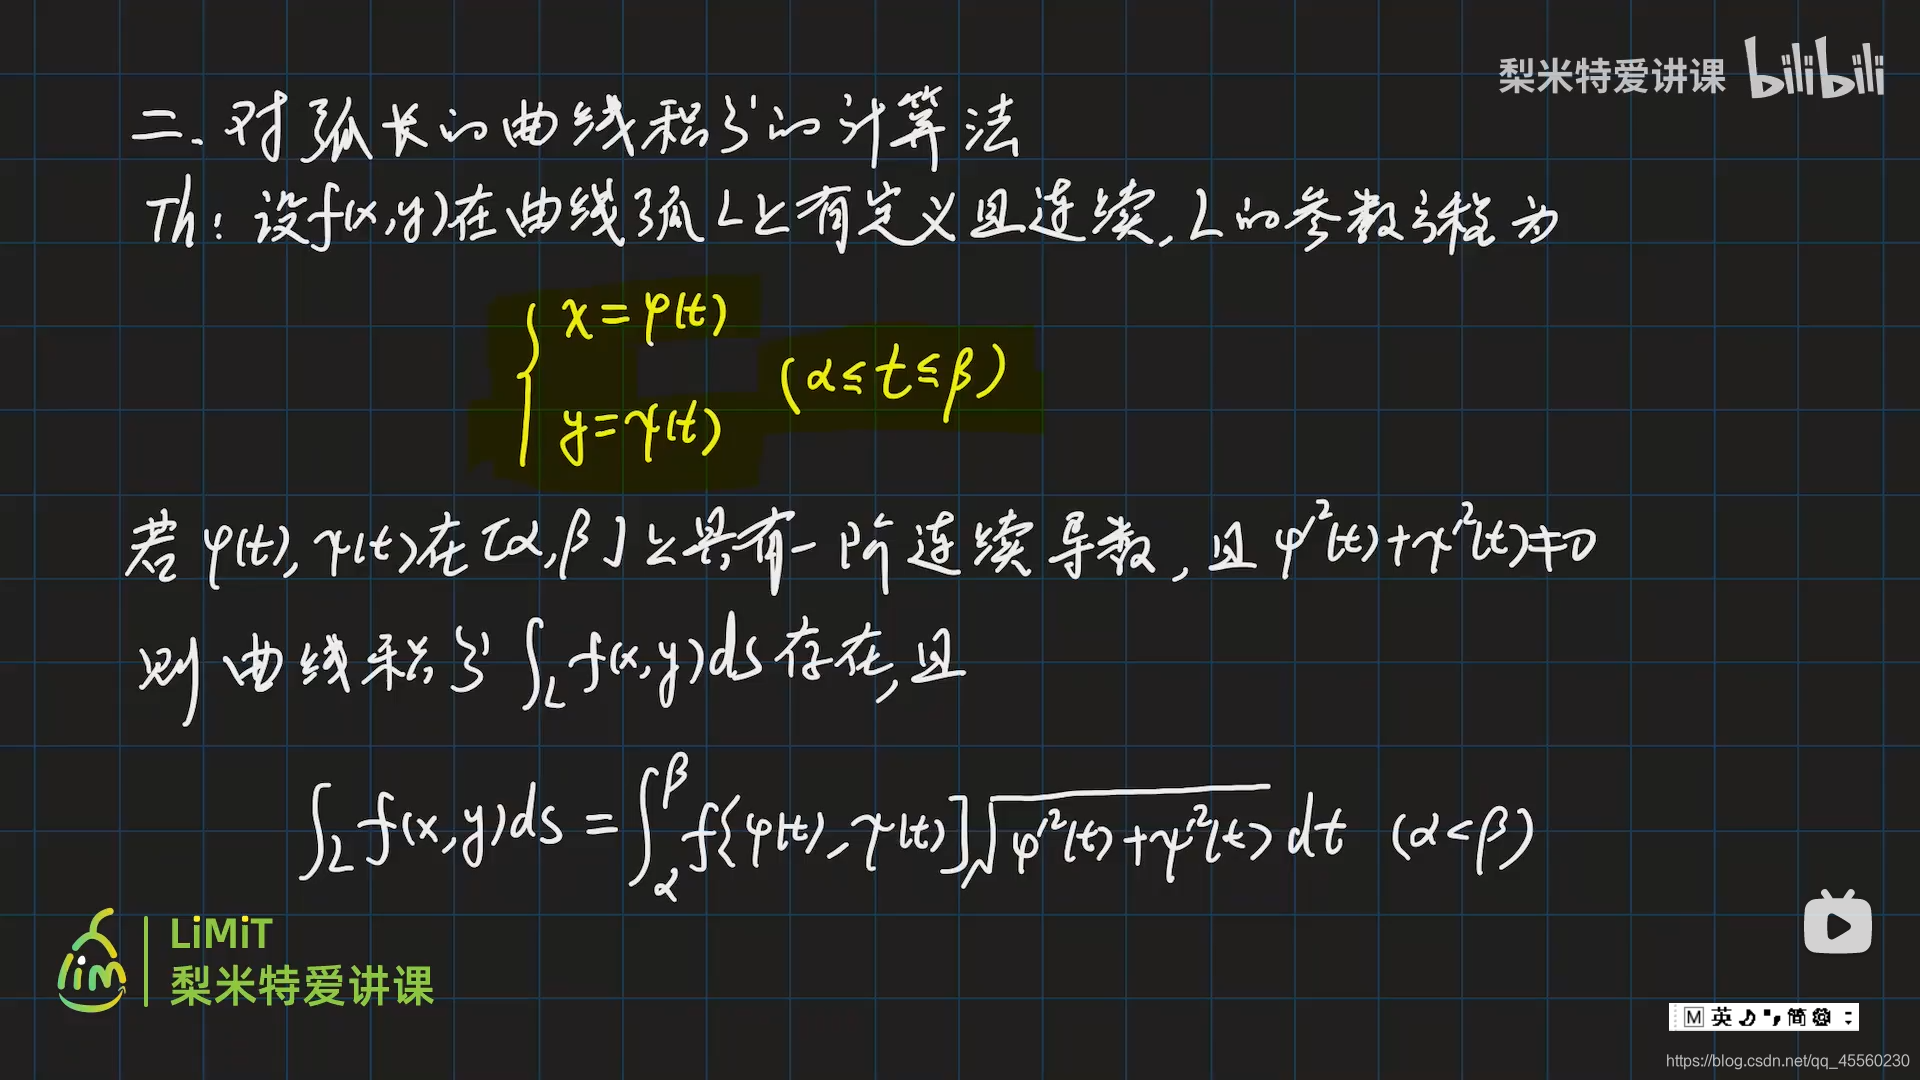 梨米特爱讲课 bilibili
二.对弧长的曲线积分的计算法
Th: 设f(x,y)在曲线弧L上有定义且连续,L的参数方程为
x=φ(t)
(α≤t≤β)
y=ψ(t)
若φ(t),ψ(t)在[α,β]上具有一阶连续导数,且φ'²(t)+ψ'²(t)≠0
则曲线积分∫_L f(x,y)ds存在,且
∫_L f(x,y)ds=∫_α^β f[φ(t),ψ(t)]√(φ'²(t)+ψ'²(t)) dt (α<β)
lim
LiMiT
梨米特爱讲课
M 英 简
https://blog.csdn.net/qq_45560230